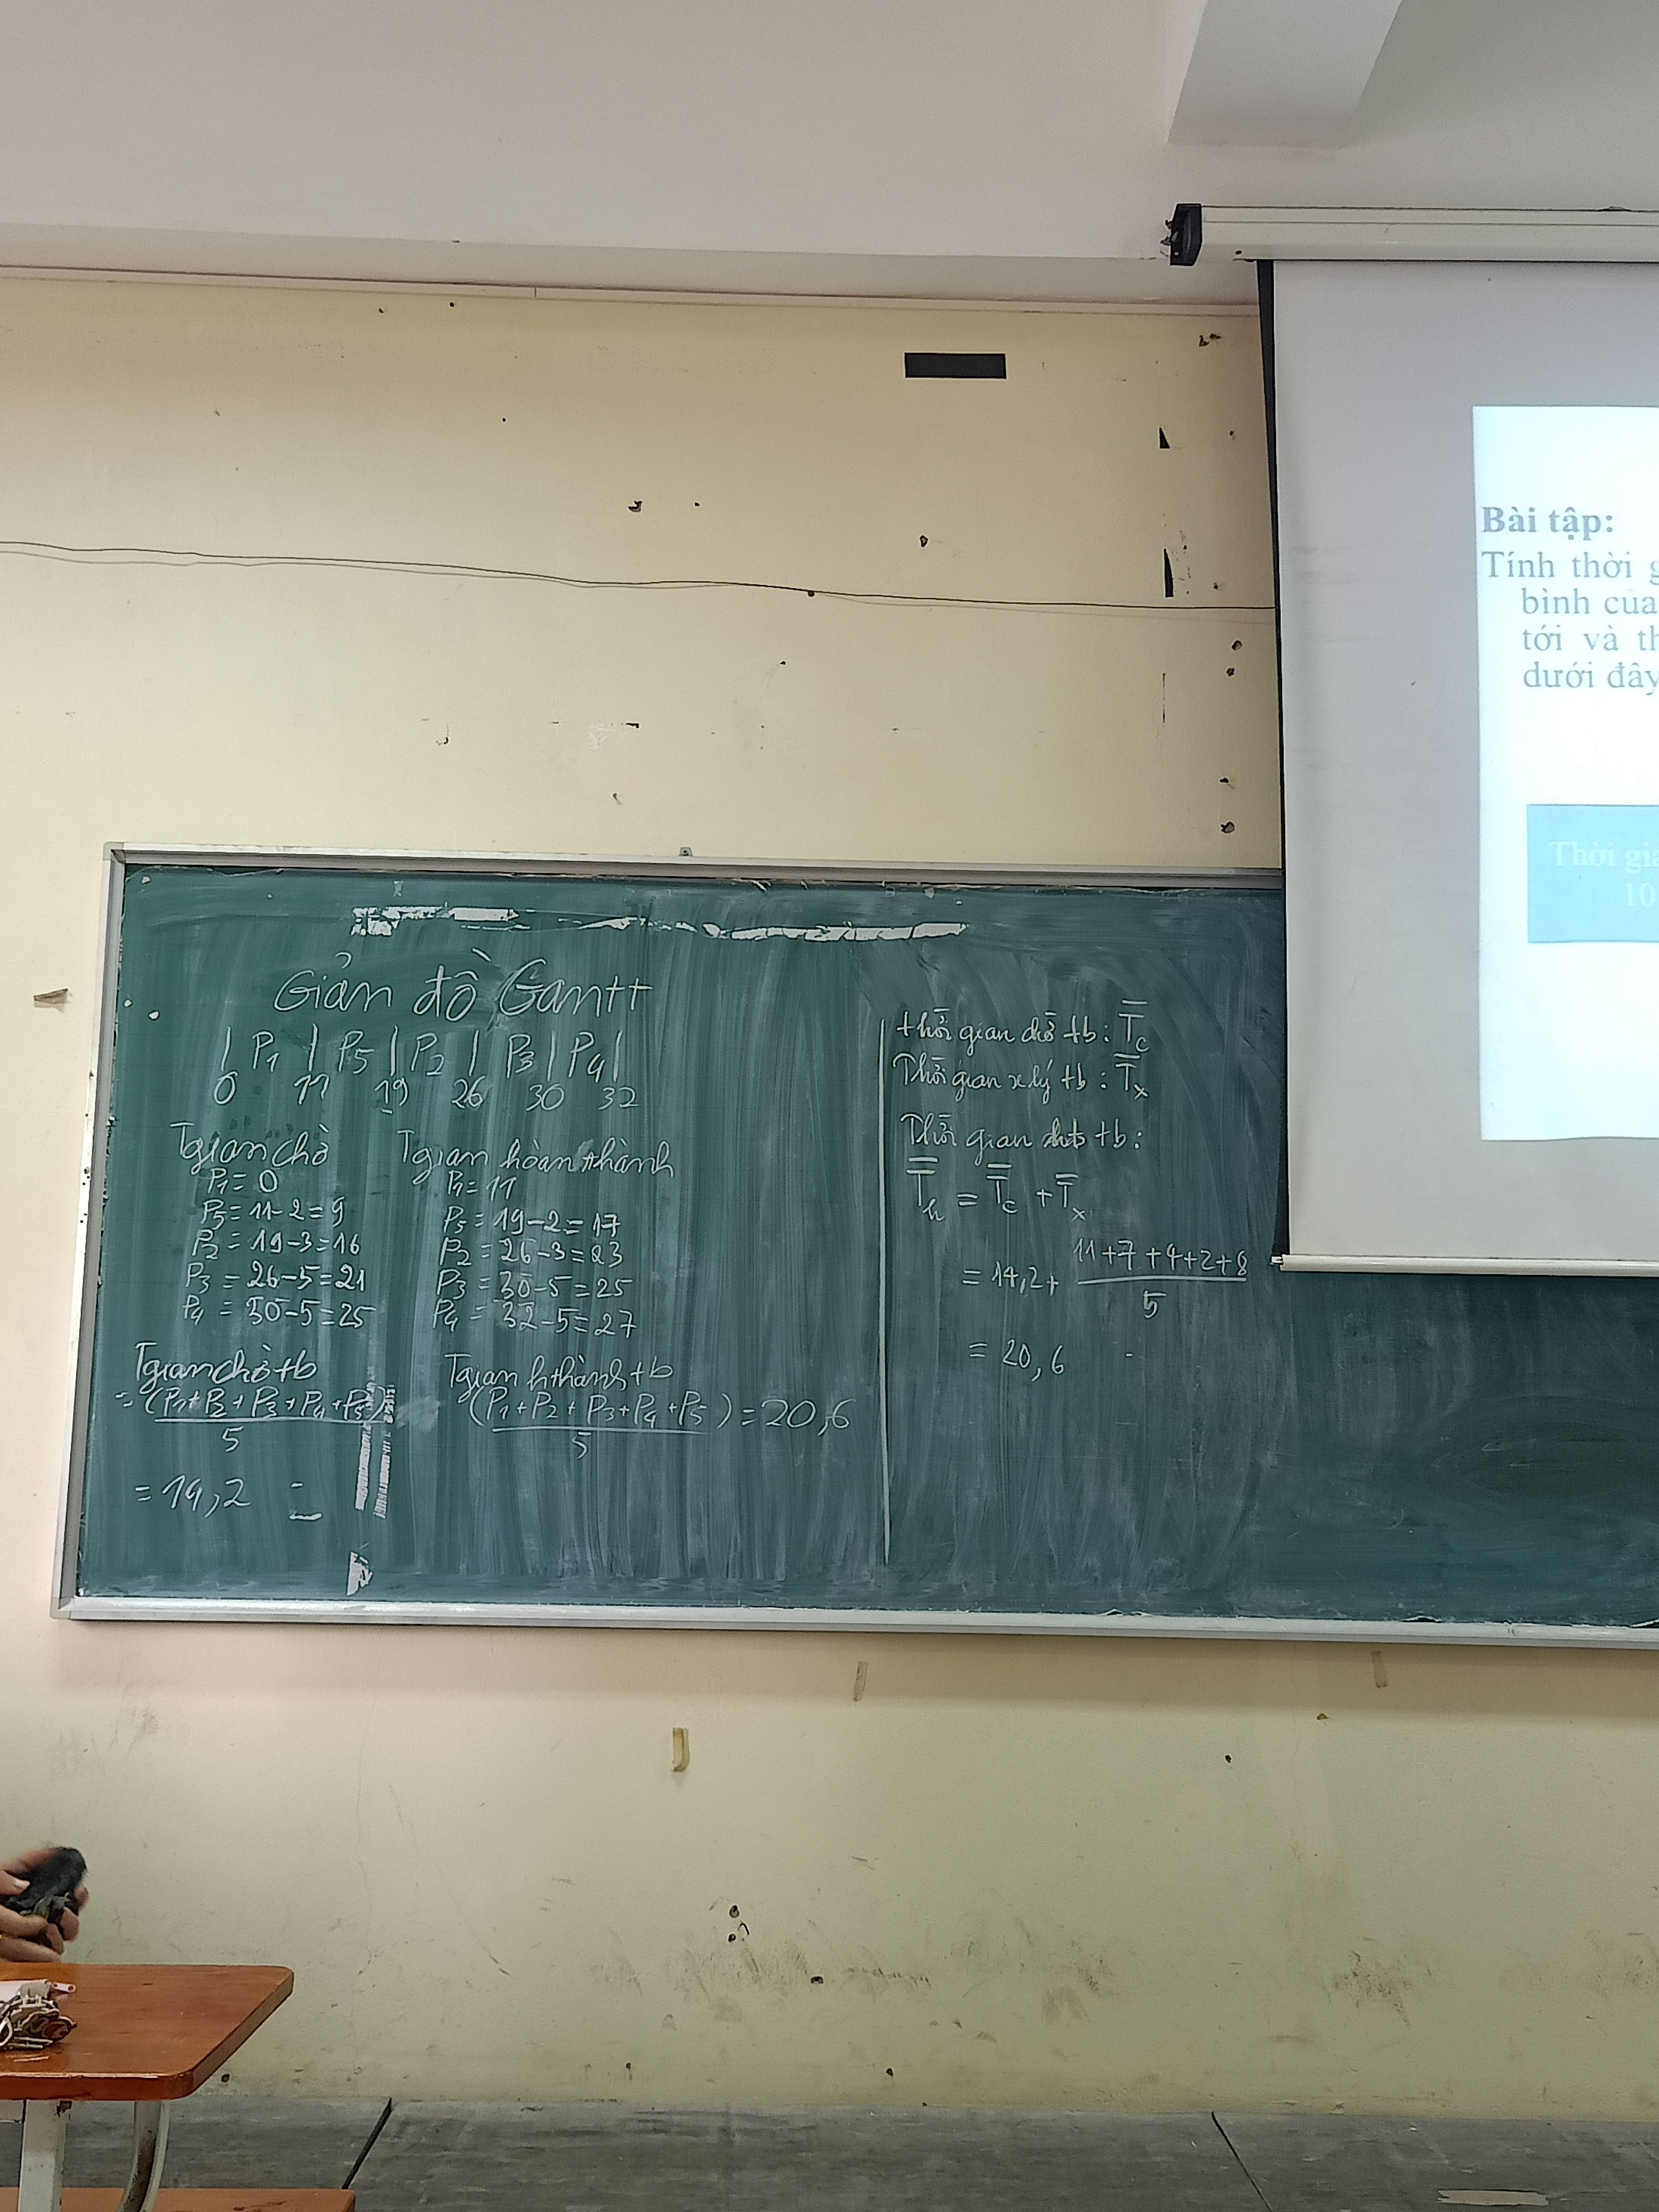 Giản đồ Gantt
| P1 | P5 | P2 | P3 | P4 |
0 11 19 26 30 32
Tgian chờ
P1 = 0
P5 = 11-2 = 9
P2 = 19-3 = 16
P3 = 26-5 = 21
P4 = 30-5 = 25
Tgian chờ tb
= (P1+P2+P3+P4+P5)
5
= 14,2
Tgian hoàn thành
P1 = 11
P5 = 19-2 = 17
P2 = 26-3 = 23
P3 = 30-5 = 25
P4 = 32-5 = 27
Tgian hthành tb
(P1+P2+P3+P4+P5) = 20,6
5
thời gian chờ tb: Tc
Thời gian xlý tb: Tx
Thời gian tb:
Th = Tc + Tx
= 14,2 + 11+7+4+2+8
5
= 20,6
Bài tập:
Tính thời g
bình của
tới và th
dưới đây
Thời gia
10